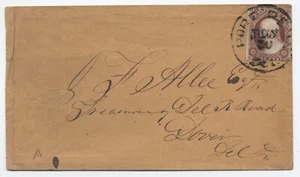 NOV
30
J F Allee Esq
Treasurer Del R Road
Dover
Del